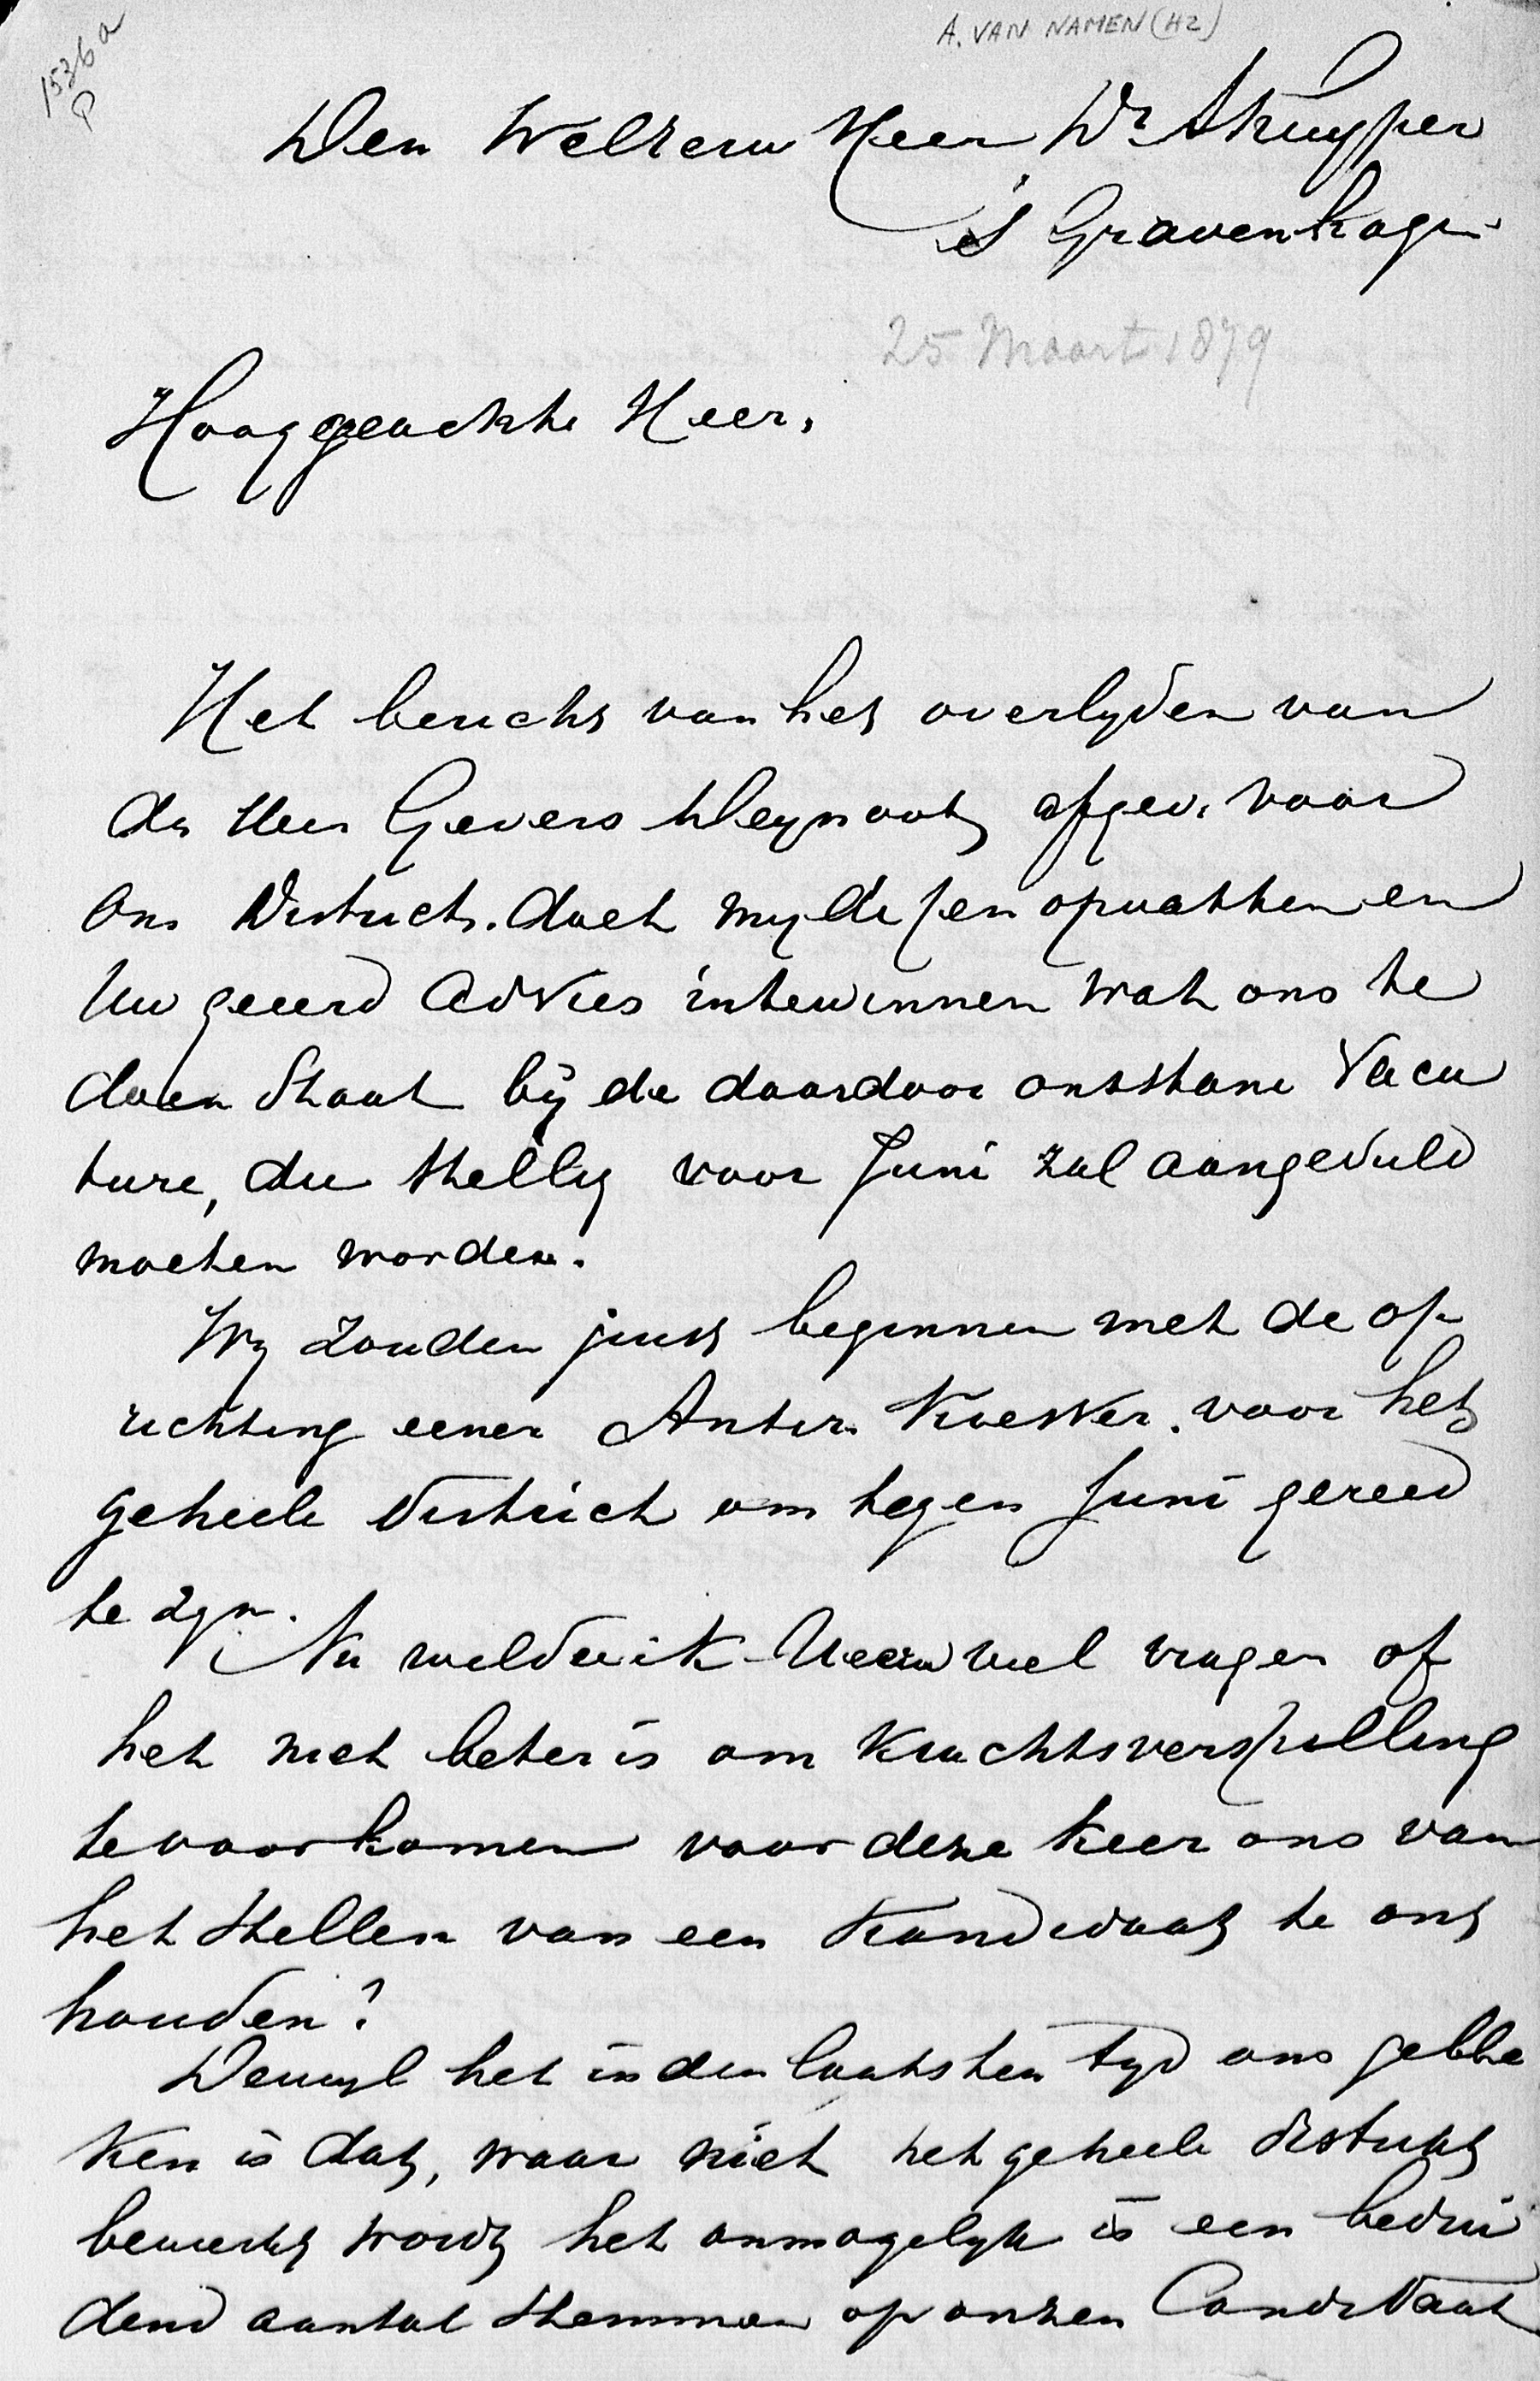 1536a
P
A. VAN NAMEN (HZ)
Den WelEerw Heer Dr AKuyper
's Gravenhage
25 Maart 1879
Hooggeachte Heer,
Het bericht van het overlyden van
de Heer Gevers Deynoot afgev. voor
ons District. doet my de pen opvatten en
Uw geeerd advies intewinnen wat ons te
doen staat bij de daardoor ontstane Vaca
ture, die stellig voor Juni zal aangevuld
moeten worden.
Wy zouden juist beginnen met de op
richting eener Antir. Kiesver. voor het
geheele District om tegen Juni gereed
te zyn.
Nu wilde ik UEerw wel vragen of
het niet beter is om krachtsverspilling
te voorkomen voor deze keer ons van
het stellen van een Kandidaat te ont
houden?
Dewyl het in den laatsten tyd ons gebле
ken is dat, waar niet het geheele district
bewerkt wordt het onmogelyk is een bedui
dend aantal stemmen op onzen Candidaat